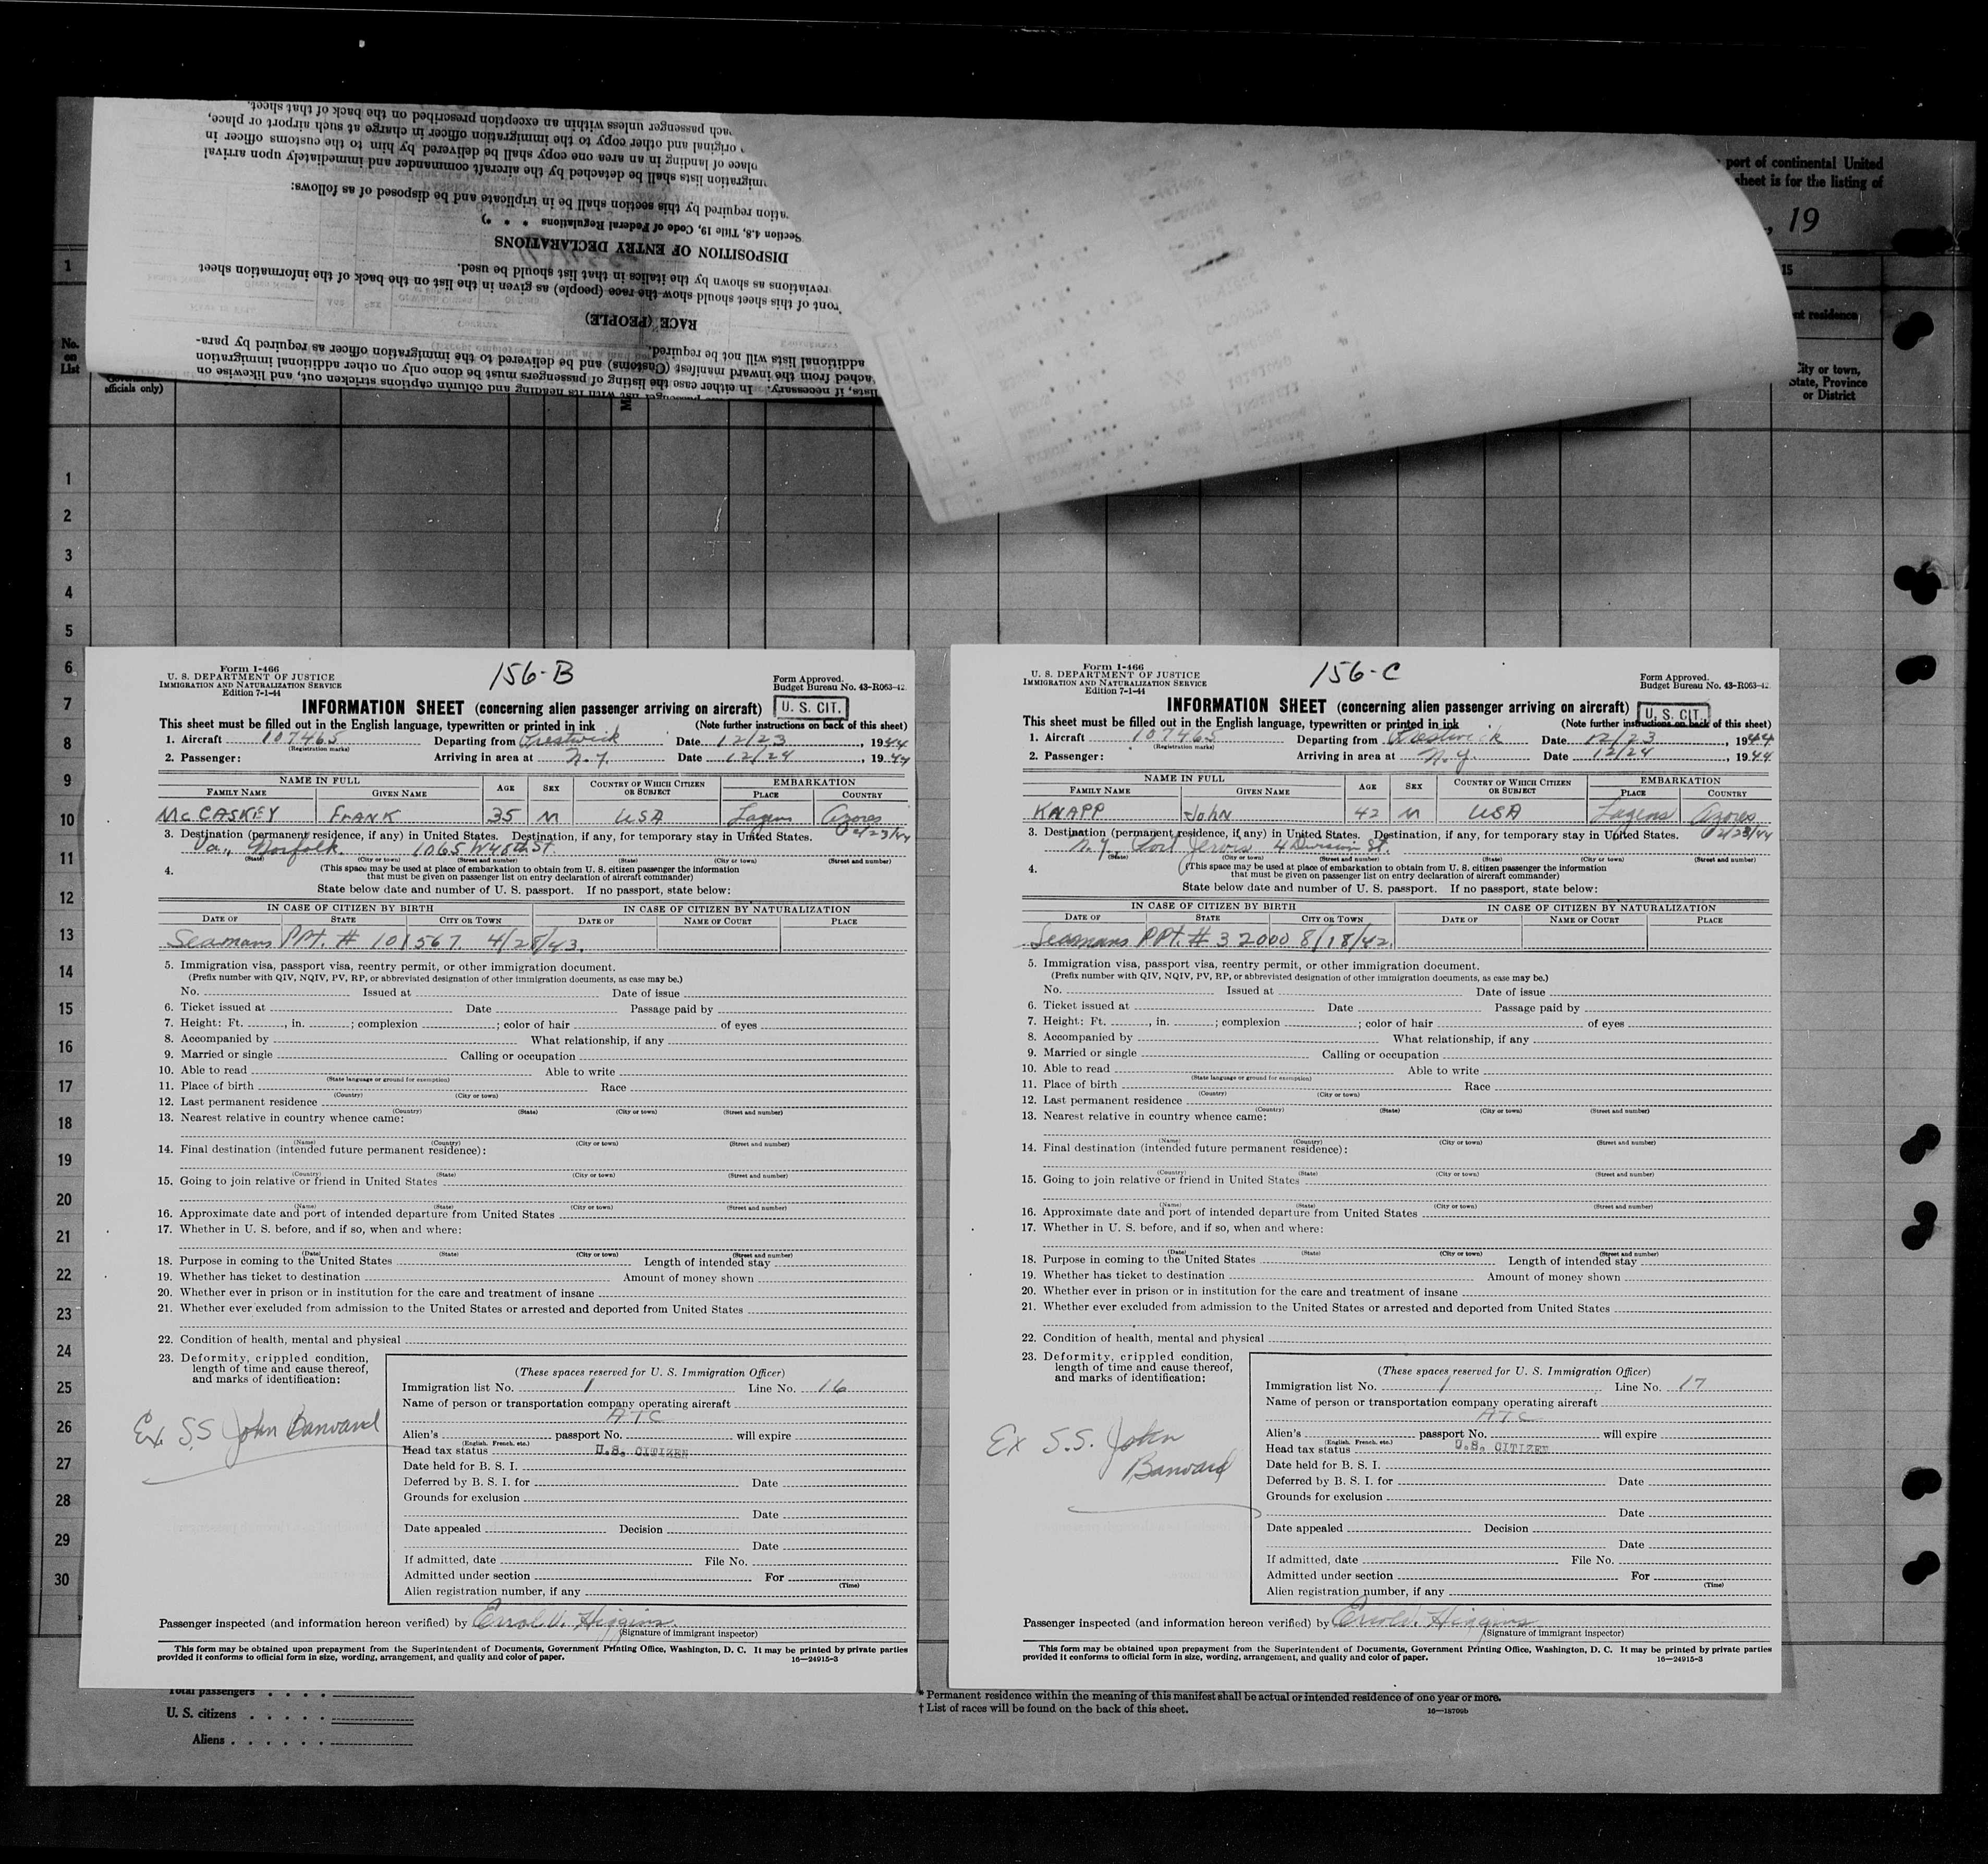 port of continental United
sheet is for the listing of
, 19
ach passenger unless within an exception prescribed on the back of that sheet.
original and other copy to the immigration officer in charge at such airport or place,
place of landing in an area one copy shall be delivered by him to the customs officer in
migration lists shall be detached by the aircraft commander and immediately upon arrival
ation required by this section shall be in triplicate and be disposed of as follows:
Section 4.8, Title 19, Code of Federal Regulations * * *)
DISPOSITION OF ENTRY DECLARATIONS
reviations as shown by the italics in that list should be used.
ront of this sheet should show the race (people) as given in the list on the back of the information sheet
RACE (PEOPLE)
additional lists will not be required.
ached from the inward manifest (Customs) and be delivered to the immigration officer as required by para-
lists, if necessary. In either case the listing of passengers must be done only on other additional immigration
with its heading and column captions stricken out, and likewise on
1
15
No.
on
List
nt residence
officials only)
City or town,
State, Province
or District
1
2
3
4
5
6
7
8
9
10
11
12
13
14
15
16
17
18
19
20
21
22
23
24
25
26
27
28
29
30
Form I-466
U. S. DEPARTMENT OF JUSTICE
IMMIGRATION AND NATURALIZATION SERVICE
Edition 7-1-44
156-B
Form Approved.
Budget Bureau No. 43-R063-42
INFORMATION SHEET (concerning alien passenger arriving on aircraft) U. S. CIT.
This sheet must be filled out in the English language, typewritten or printed in ink (Note further instructions on back of this sheet)
1. Aircraft 107465 Departing from Prestwick Date 12/23, 1944
(Registration marks)
2. Passenger: Arriving in area at N.Y. Date 12/24, 1944
NAME IN FULL AGE SEX COUNTRY OF WHICH CITIZEN OR SUBJECT EMBARKATION
FAMILY NAME GIVEN NAME PLACE COUNTRY
McCASKEY FRANK 35 M USA Lagens Azores
12/23/44
3. Destination (permanent residence, if any) in United States. Destination, if any, for temporary stay in United States.
Va., Norfolk. 1065 W 48th St.
(State) (City or town) (Street and number) (State) (City or town) (Street and number)
4. (This space may be used at place of embarkation to obtain from U. S. citizen passenger the information
that must be given on passenger list on entry declaration of aircraft commander)
State below date and number of U. S. passport. If no passport, state below:
IN CASE OF CITIZEN BY BIRTH IN CASE OF CITIZEN BY NATURALIZATION
DATE OF STATE CITY OR TOWN DATE OF NAME OF COURT PLACE
Seamans PPt. # 101567 4/28/43.
5. Immigration visa, passport visa, reentry permit, or other immigration document.
(Prefix number with QIV, NQIV, PV, RP, or abbreviated designation of other immigration documents, as case may be.)
No. Issued at Date of issue
6. Ticket issued at Date Passage paid by
7. Height: Ft. , in. ; complexion ; color of hair of eyes
8. Accompanied by What relationship, if any
9. Married or single Calling or occupation
10. Able to read Able to write
(State language or ground for exemption)
11. Place of birth Race
(Country) (City or town)
12. Last permanent residence
(Country) (State) (City or town) (Street and number)
13. Nearest relative in country whence came:
(Name) (Country) (City or town) (Street and number)
14. Final destination (intended future permanent residence):
(Country) (State) (City or town) (Street and number)
15. Going to join relative or friend in United States
(Name) (State) (City or town) (Street and number)
16. Approximate date and port of intended departure from United States
17. Whether in U. S. before, and if so, when and where:
(Date) (State) (City or town) (Street and number)
18. Purpose in coming to the United States Length of intended stay
19. Whether has ticket to destination Amount of money shown
20. Whether ever in prison or in institution for the care and treatment of insane
21. Whether ever excluded from admission to the United States or arrested and deported from United States
22. Condition of health, mental and physical
23. Deformity, crippled condition,
length of time and cause thereof,
and marks of identification:
Ex S.S John Banvard
(These spaces reserved for U. S. Immigration Officer)
Immigration list No. 1 Line No. 16
Name of person or transportation company operating aircraft
ATC
Alien's passport No. will expire
(English, French, etc.)
Head tax status U.S. CITIZEN
Date held for B. S. I.
Deferred by B. S. I. for Date
Grounds for exclusion
Date
Date appealed Decision
Date
If admitted, date File No.
Admitted under section For
(Time)
Alien registration number, if any
Passenger inspected (and information hereon verified) by Errol V. Higgins.
(Signature of immigrant inspector)
This form may be obtained upon prepayment from the Superintendent of Documents, Government Printing Office, Washington, D. C. It may be printed by private parties
provided it conforms to official form in size, wording, arrangement, and quality and color of paper. 16—24915-3
Form I-466
U. S. DEPARTMENT OF JUSTICE
IMMIGRATION AND NATURALIZATION SERVICE
Edition 7-1-44
156-C
Form Approved.
Budget Bureau No. 43-R063-42
INFORMATION SHEET (concerning alien passenger arriving on aircraft) U. S. CIT.
This sheet must be filled out in the English language, typewritten or printed in ink (Note further instructions on back of this sheet)
1. Aircraft 107465 Departing from Prestwick Date 12/23, 1944
(Registration marks)
2. Passenger: Arriving in area at N.Y. Date 12/24, 1944
NAME IN FULL AGE SEX COUNTRY OF WHICH CITIZEN OR SUBJECT EMBARKATION
FAMILY NAME GIVEN NAME PLACE COUNTRY
KNAPP John 42 M USA Lagens Azores
12/23/44
3. Destination (permanent residence, if any) in United States. Destination, if any, for temporary stay in United States.
N.Y. Port Jervis 4 Division St.
(State) (City or town) (Street and number) (State) (City or town) (Street and number)
4. (This space may be used at place of embarkation to obtain from U. S. citizen passenger the information
that must be given on passenger list on entry declaration of aircraft commander)
State below date and number of U. S. passport. If no passport, state below:
IN CASE OF CITIZEN BY BIRTH IN CASE OF CITIZEN BY NATURALIZATION
DATE OF STATE CITY OR TOWN DATE OF NAME OF COURT PLACE
Seamans PPt. # 32000 8/18/42.
5. Immigration visa, passport visa, reentry permit, or other immigration document.
(Prefix number with QIV, NQIV, PV, RP, or abbreviated designation of other immigration documents, as case may be.)
No. Issued at Date of issue
6. Ticket issued at Date Passage paid by
7. Height: Ft. , in. ; complexion ; color of hair of eyes
8. Accompanied by What relationship, if any
9. Married or single Calling or occupation
10. Able to read Able to write
(State language or ground for exemption)
11. Place of birth Race
(Country) (City or town)
12. Last permanent residence
(Country) (State) (City or town) (Street and number)
13. Nearest relative in country whence came:
(Name) (Country) (City or town) (Street and number)
14. Final destination (intended future permanent residence):
(Country) (State) (City or town) (Street and number)
15. Going to join relative or friend in United States
(Name) (State) (City or town) (Street and number)
16. Approximate date and port of intended departure from United States
17. Whether in U. S. before, and if so, when and where:
(Date) (State) (City or town) (Street and number)
18. Purpose in coming to the United States Length of intended stay
19. Whether has ticket to destination Amount of money shown
20. Whether ever in prison or in institution for the care and treatment of insane
21. Whether ever excluded from admission to the United States or arrested and deported from United States
22. Condition of health, mental and physical
23. Deformity, crippled condition,
length of time and cause thereof,
and marks of identification:
Ex S.S. John
Banvard
(These spaces reserved for U. S. Immigration Officer)
Immigration list No. 1 Line No. 17
Name of person or transportation company operating aircraft
ATC
Alien's passport No. will expire
(English, French, etc.)
Head tax status U.S. CITIZEN
Date held for B. S. I.
Deferred by B. S. I. for Date
Grounds for exclusion
Date
Date appealed Decision
Date
If admitted, date File No.
Admitted under section For
(Time)
Alien registration number, if any
Passenger inspected (and information hereon verified) by Errol V. Higgins
(Signature of immigrant inspector)
This form may be obtained upon prepayment from the Superintendent of Documents, Government Printing Office, Washington, D. C. It may be printed by private parties
provided it conforms to official form in size, wording, arrangement, and quality and color of paper. 16—24915-3
Total passengers
U. S. citizens
Aliens
* Permanent residence within the meaning of this manifest shall be actual or intended residence of one year or more.
† List of races will be found on the back of this sheet. 16—18709b